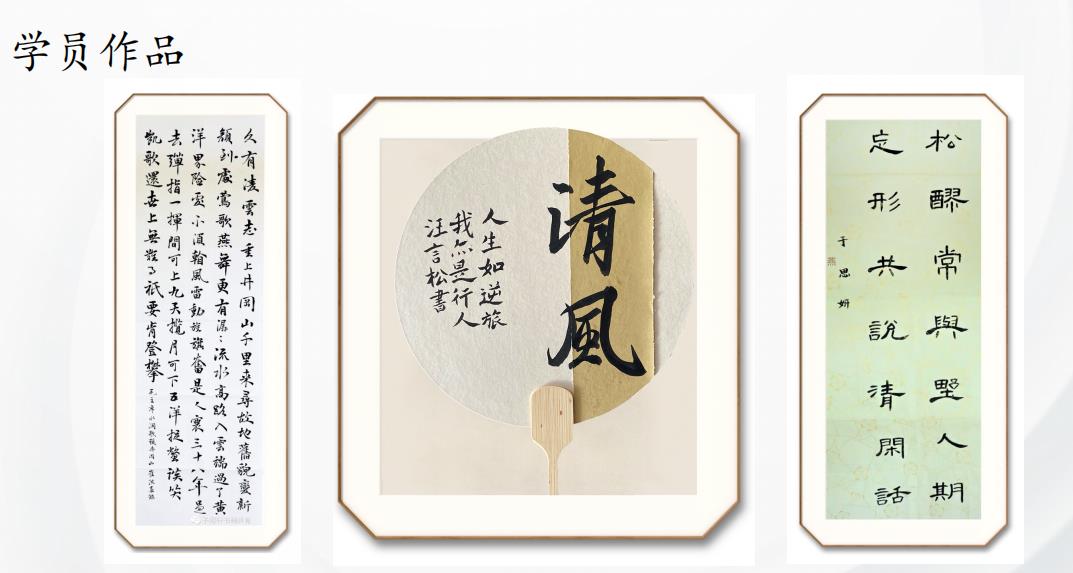 学员作品
久有凌雲志重上井岡山千里來尋故地舊貌變新
顏到處鶯歌燕舞更有潺〻流水高路入雲端過了黄
洋界險處不須看風雷動旌旗奮是人寰三十八年過
去彈指一揮間可上九天攬月可下五洋捉鱉談笑
凱歌還世上無難事祇要肯登攀
毛主席水調歌頭重上井岡山
清風
人生如逆旅
我亦是行人
汪言松書
松醪常與野人期
忘形共說清閑話
于思妍